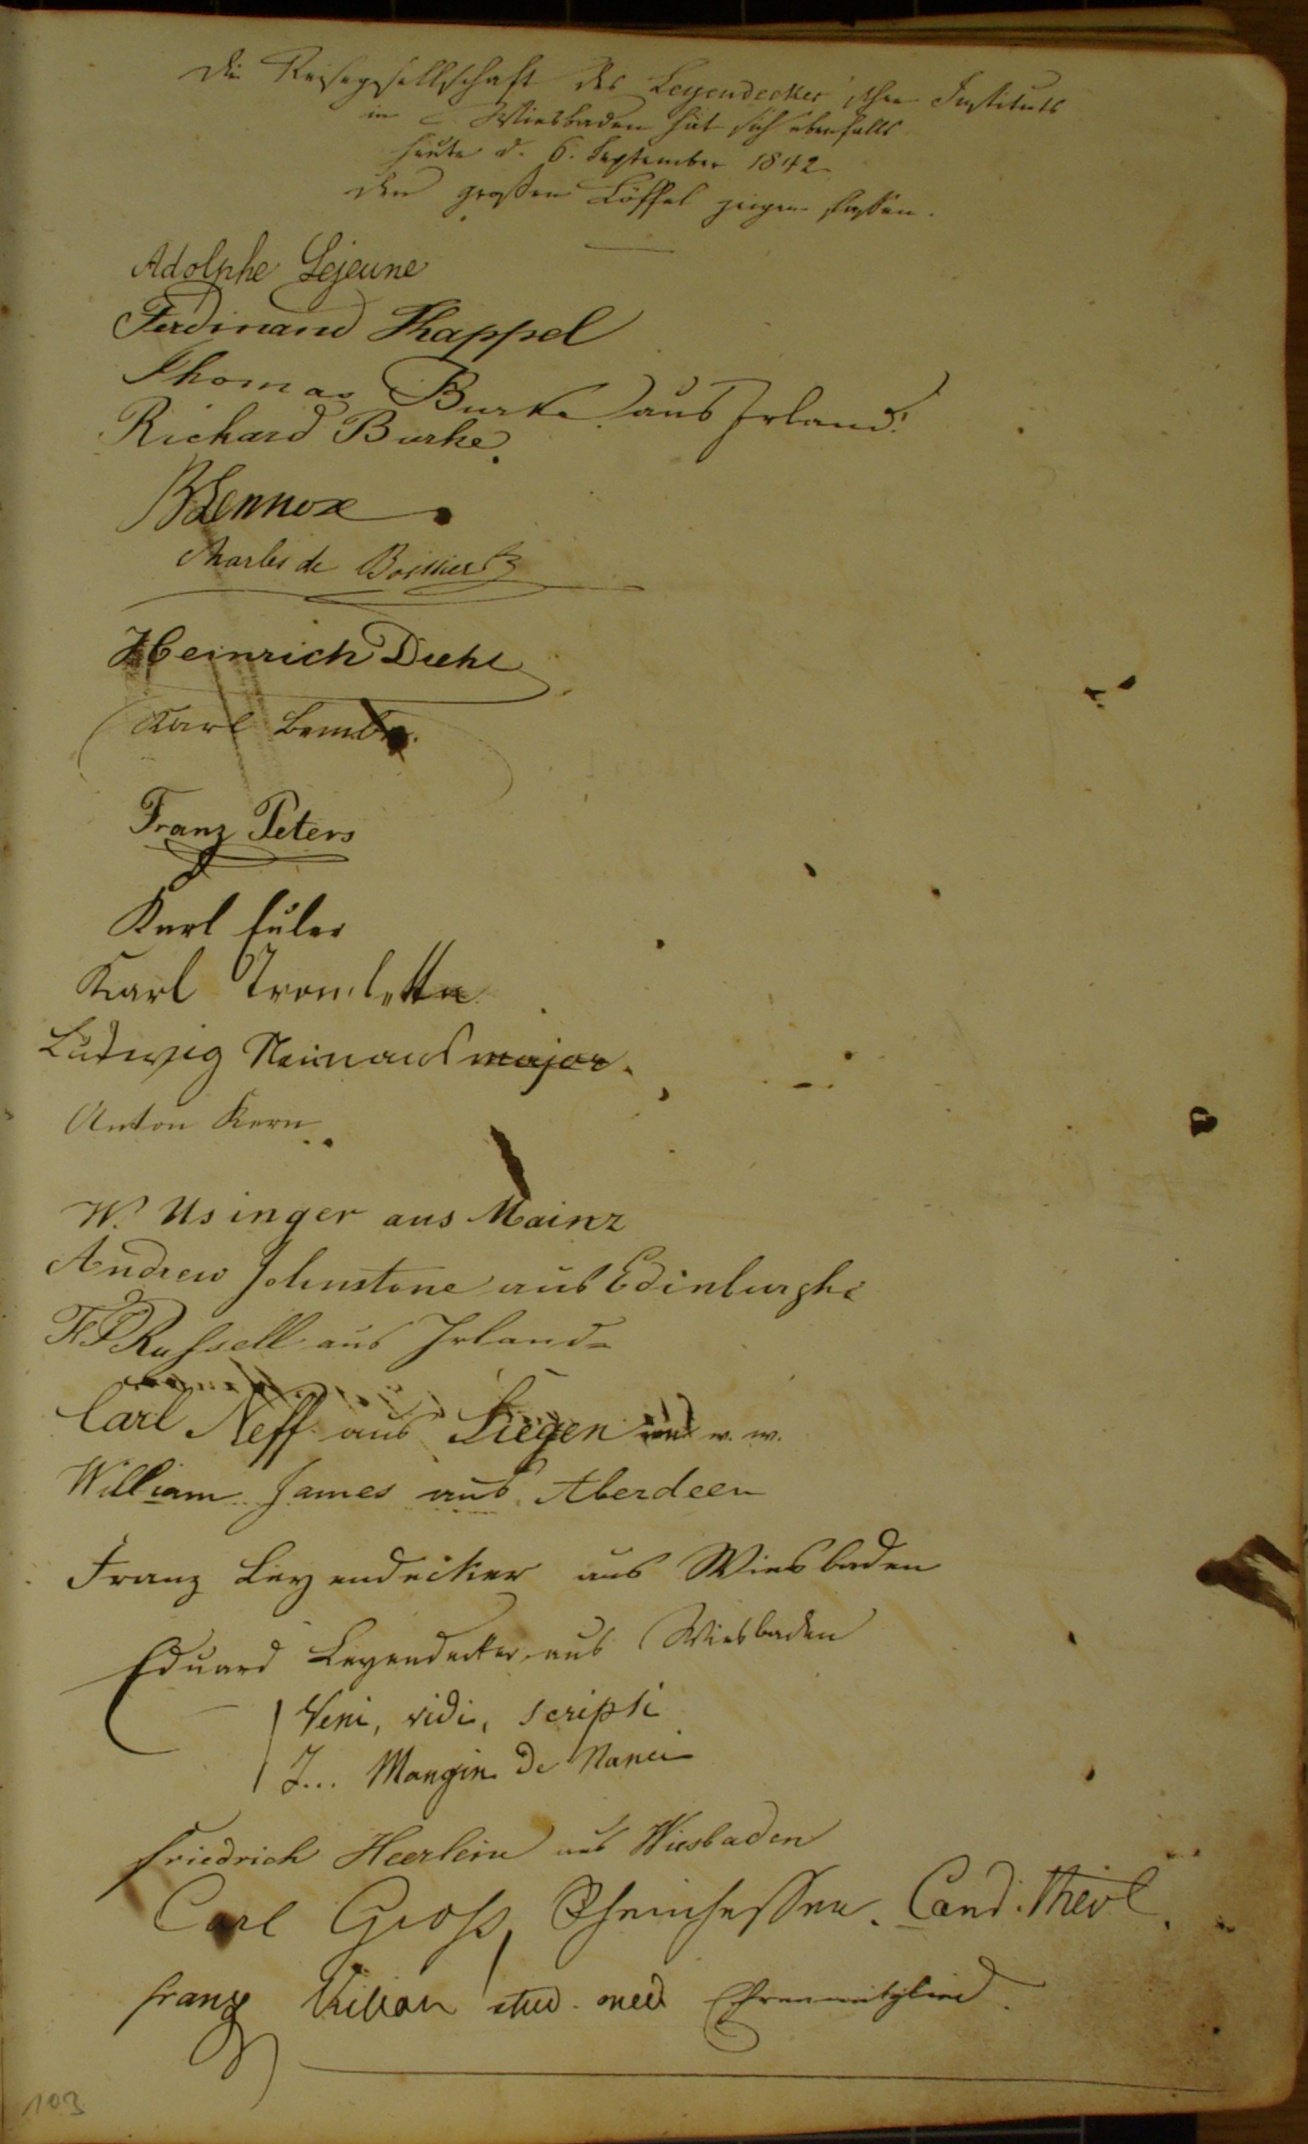 Die Reisegesellschaft des Leyendecker'schen Instituts
in Wiesbaden hat sich ebenfalls
heute d. 6. September 1842
den großen Löffel zeigen lassen.
Adolphe Lejeune
Ferdinand Kappel
Thomas Burke aus Irland.
Richard Burke.
B Lennox
Charles de
Heinrich Diehl
Karl
Franz Peters
Karl Euler
Karl Trombetta
Ludwig major.
Anton Kern
W. Usinger aus Mainz
Andrew Johnstone aus Edinburgh
Russell aus Irland
Carl Neff aus Siegen w. w.
William James aus Aberdeen
Franz Leyendecker aus Wiesbaden
Eduard Leyendecker aus Wiesbaden
Veni, vidi, scripsi
J... Mangin de Nanci
Friedrich Heerlein aus Wiesbaden
Carl Groß, Rheinhessen. Cand. Theol.
Franz Kilian stud. med Ehrenmitglied.
103